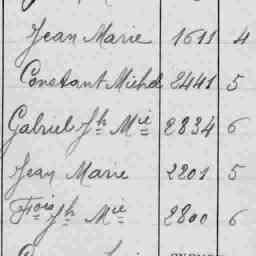 Jean Marie 1611 4
Constant Michel 2441 5
Gabriel Jh Mie 2834 6
Jean Marie 2201 5
Fois Jh Mie 2800 6